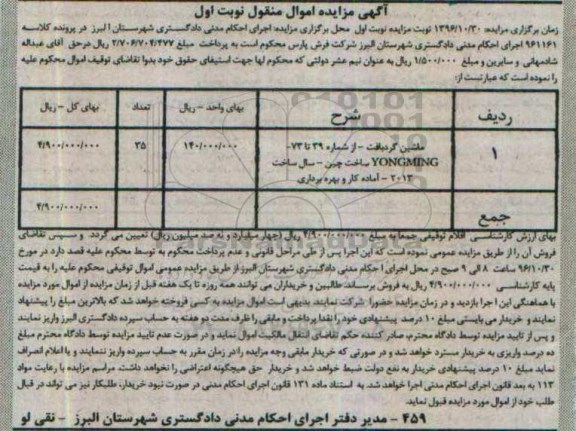 آگهی مزایده اموال منقول نوبت اول
زمان برگزاری مزایده: ۱۳۹۶/۱۰/۳۰ نوبت مزایده نوبت اول محل برگزاری مزایده: اجرای احکام مدنی دادگستری شهرستان البرز در پرونده کلاسه
۹۶۱۱۶۱ اجرای احکام مدنی دادگستری شهرستان البرز شرکت فرش پارس محکوم است به پرداخت مبلغ ۲/۷۰۶/۷۰۴/۳۷۷ ریال درحق آقای عبداله
شادمهانی و سایرین و مبلغ ۱/۵۰۰/۰۰۰ ریال به عنوان نیم عشر دولتی که محکوم لها جهت استیفای حقوق خود بدوا تقاضای توقیف اموال محکوم علیه
را نموده است که عبارتست از:
ردیف شرح بهای واحد - ریال تعداد بهای کل - ریال
۱ ماشین گردبافت - از شماره ۳۹ تا ۷۳- ۱۴۰/۰۰۰/۰۰۰ ۳۵ ۴/۹۰۰/۰۰۰/۰۰۰
YONGMING ساخت چین - سال ساخت
۲۰۱۳ - آماده کار و بهره برداری
جمع ۴/۹۰۰/۰۰۰/۰۰۰
بهای ارزش کارشناسی اقلام توقیفی جمعا به مبلغ ۴/۹۰۰/۰۰۰/۰۰۰ ریال (چهار میلیارد و نه صد میلیون ریال) تعیین می گردد و سپس تقاضای
فروش آن را از طریق مزایده عمومی نموده است که این اجرا پس از طی مراحل قانونی و عدم پرداخت محکوم به توسط محکوم علیه قصد دارد در مورخ
۹۶/۱۰/۳۰ ساعت ۸ الی ۹ صبح در محل اجرای احکام مدنی دادگستری شهرستان البرز از طریق مزایده عمومی اموال توقیفی محکوم علیه را به قیمت
پایه کارشناسی ۴/۹۰۰/۰۰۰/۰۰۰ ریال به فروش برساند، طالبین و خریداران می توانند همه روزه تا یک هفته قبل از زمان مزایده از اموال مورد مزایده
با هماهنگی این اجرا بازدید و در زمان مزایده حضورا شرکت نمایند. بدیهی است اموال مزایده به کسی فروخته خواهد شد که بالاترین مبلغ را پیشنهاد
نمایند و خریدار می بایستی مبلغ ۱۰ درصد پیشنهادی خود را نقدا پرداخت و مابقی را ظرف مدت دو هفته به حساب سپرده دادگستری البرز واریز نمایند
و پس از تایید مزایده توسط دادگاه محترم، صادر کننده حکم تقاضای انتقال مالکیت اموال نماید و در صورت عدم تایید مزایده توسط دادگاه محترم مبلغ
ده درصد واریزی به خریدار مسترد خواهد شد و در صورتی که خریدار مابقی وجه مزایده را در زمان مقرر به حساب سپرده واریز ننمایند و یا اعلام انصراف
نماید مبلغ ۱۰ درصد پیشنهادی خریدار به نفع دولت ضبط خواهد شد و خریدار حق هیچگونه اعتراضی را نخواهد داشت. مراسم مزایده با رعایت مواد
۱۱۳ به بعد قانون اجرای احکام مدنی اجرا خواهد شد. به استناد ماده ۱۳۱ قانون اجرای احکام مدنی در صورت نبود خریدار، طلبکار نیز می تواند در قبال
طلب خود از اموال مورد مزایده قبول نماید.
۴۵۹ - مدیر دفتر اجرای احکام مدنی دادگستری شهرستان البرز - نقی لو